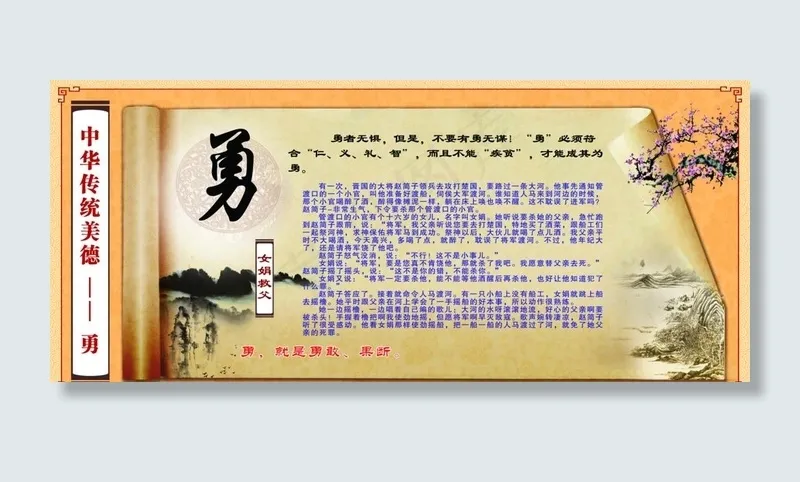 中华传统美德——勇
勇
勇者无惧，但是，不要有勇无谋！“勇”必须符
合“仁、义、礼、智”，而且不能“疾贫”，才能成其为
勇。
女娟救父
有一次，晋国的大将赵简子领兵去攻打楚国，要路过一条大河。他事先通知管
渡口的一个小官，叫他准备好渡船，伺侯大军渡河。谁知道人马来到河边的时候，
那个小官喝醉了酒，醉得像摊泥一样，躺在床上唤也唤不醒。这不耽误了进军吗？
赵简子-非常生气，下令要杀那个管渡口的小官。
管渡口的小官有个十六岁的女儿，名字叫女娟。她听说要杀她的父亲，急忙跑
到赵简子跟前，说：“将军，我父亲听说您要去打楚国，特地买了酒菜，跟船工们
一起祭河神，求神保佑将军马到成功。祭神以后，大伙儿就喝了点儿酒。我父亲平
时不大喝酒，今天高兴，多喝了点，就醉了，耽误了将军渡河。不过，他年纪大
了，还是请将军饶了他吧。
赵简子怒气没消，说：“不行！这不是小事儿。”
女娟说：“将军，要是您真不肯饶他，那就杀了我吧。我愿意替父亲去死。”
赵简子摇了摇头，说：“这不是你的错，不能杀你。”
女娟又说：“将军一定要杀他，能不能等他酒醒后再杀他，也好让他知道犯了
什么罪。”
赵简子答应了。接着就命令人马渡河。有一只小船上没有船工，女娟就跳上船
去摇橹。她平时跟父亲在河上学会了一手摇船的好本事，所以动作很熟练。
她一边摇橹，一边唱着自己编的歌儿：大河的水呀滚滚地流，好心的父亲啊要
被杀头！手握着橹把啊我使劲地摇，但愿将军啊早灭敌寇。歌声婉转凄凉，赵简子
听了很受感动。他看女娟那样使劲摇船，把一船一船的人马渡过了河，就免了她父
亲的死罪。
勇，就是勇敢、果断。